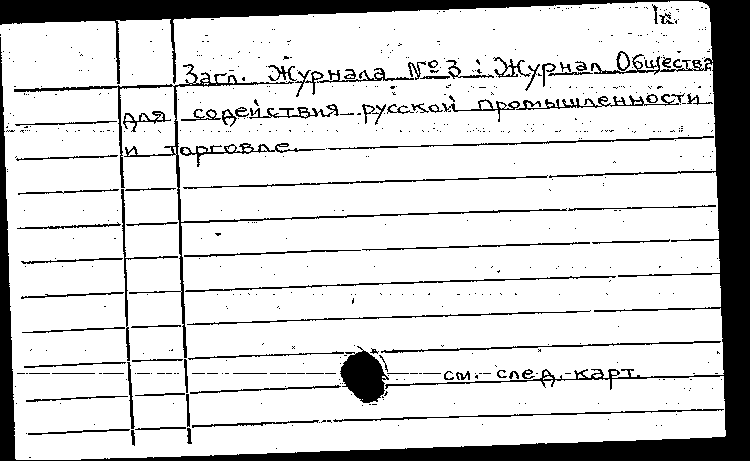 1а.
Загл. Журнала № 3 : Журнал Общества
для содействия русской промышленности
и торговле.
см. след. карт.